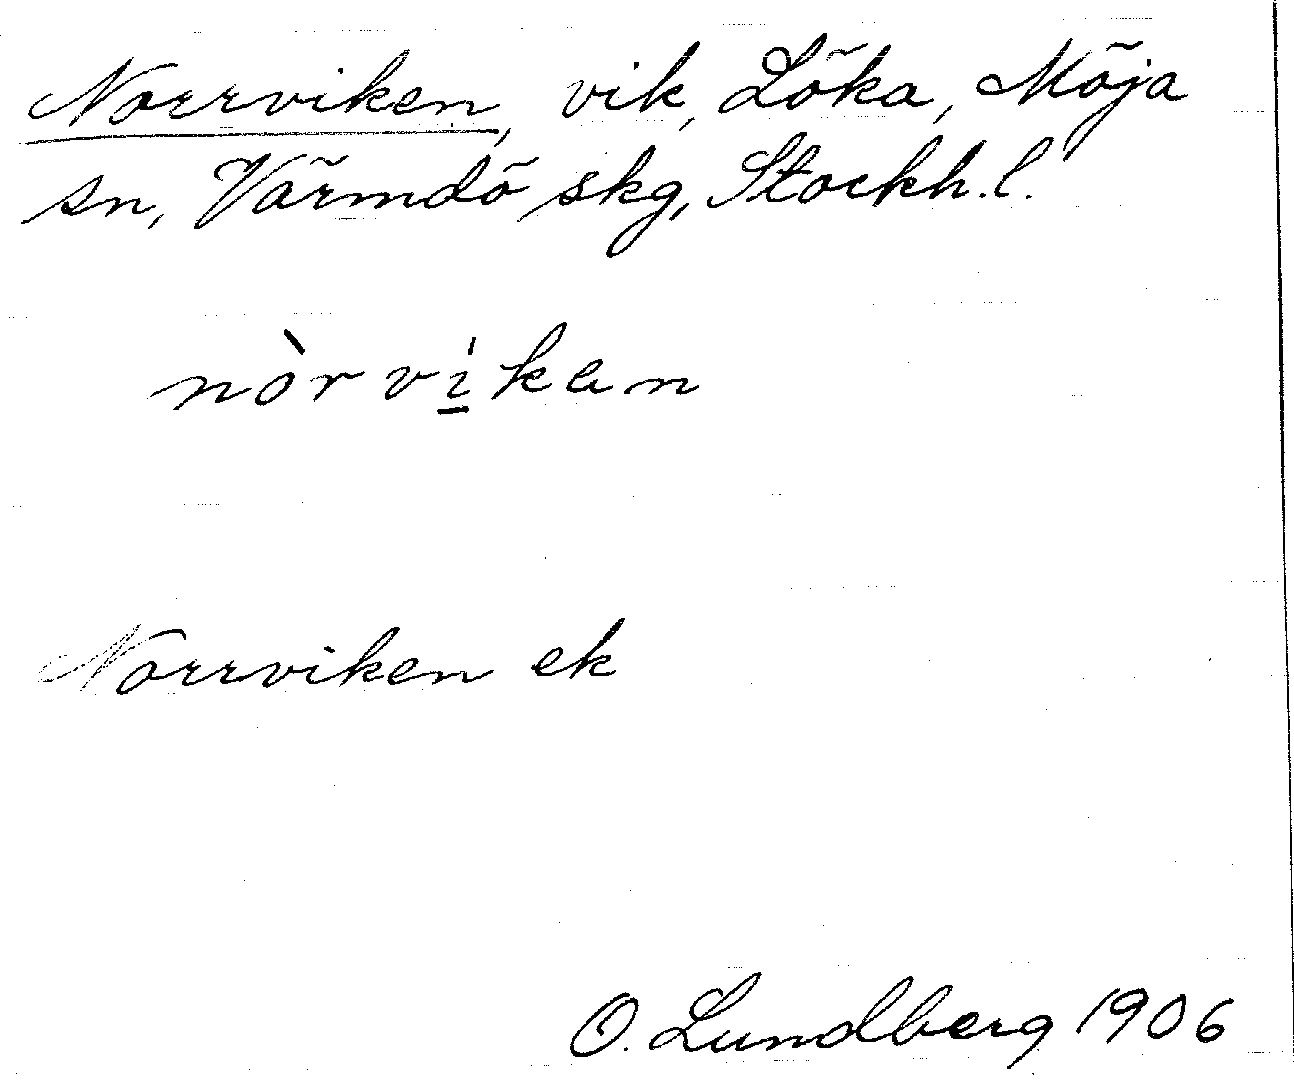 Norrviken, vik, Löka, Möja
sn, Värmdö skg, Stockh.l.
nòrví̲kan
Norrviken ek
O. Lundberg 1906